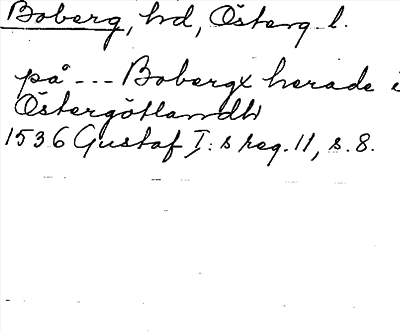 Boberg, hd, Österg. l.
på --- Bobergx herade i
Östergötlandh
1536 Gustaf I:s reg. 11, s. 8.